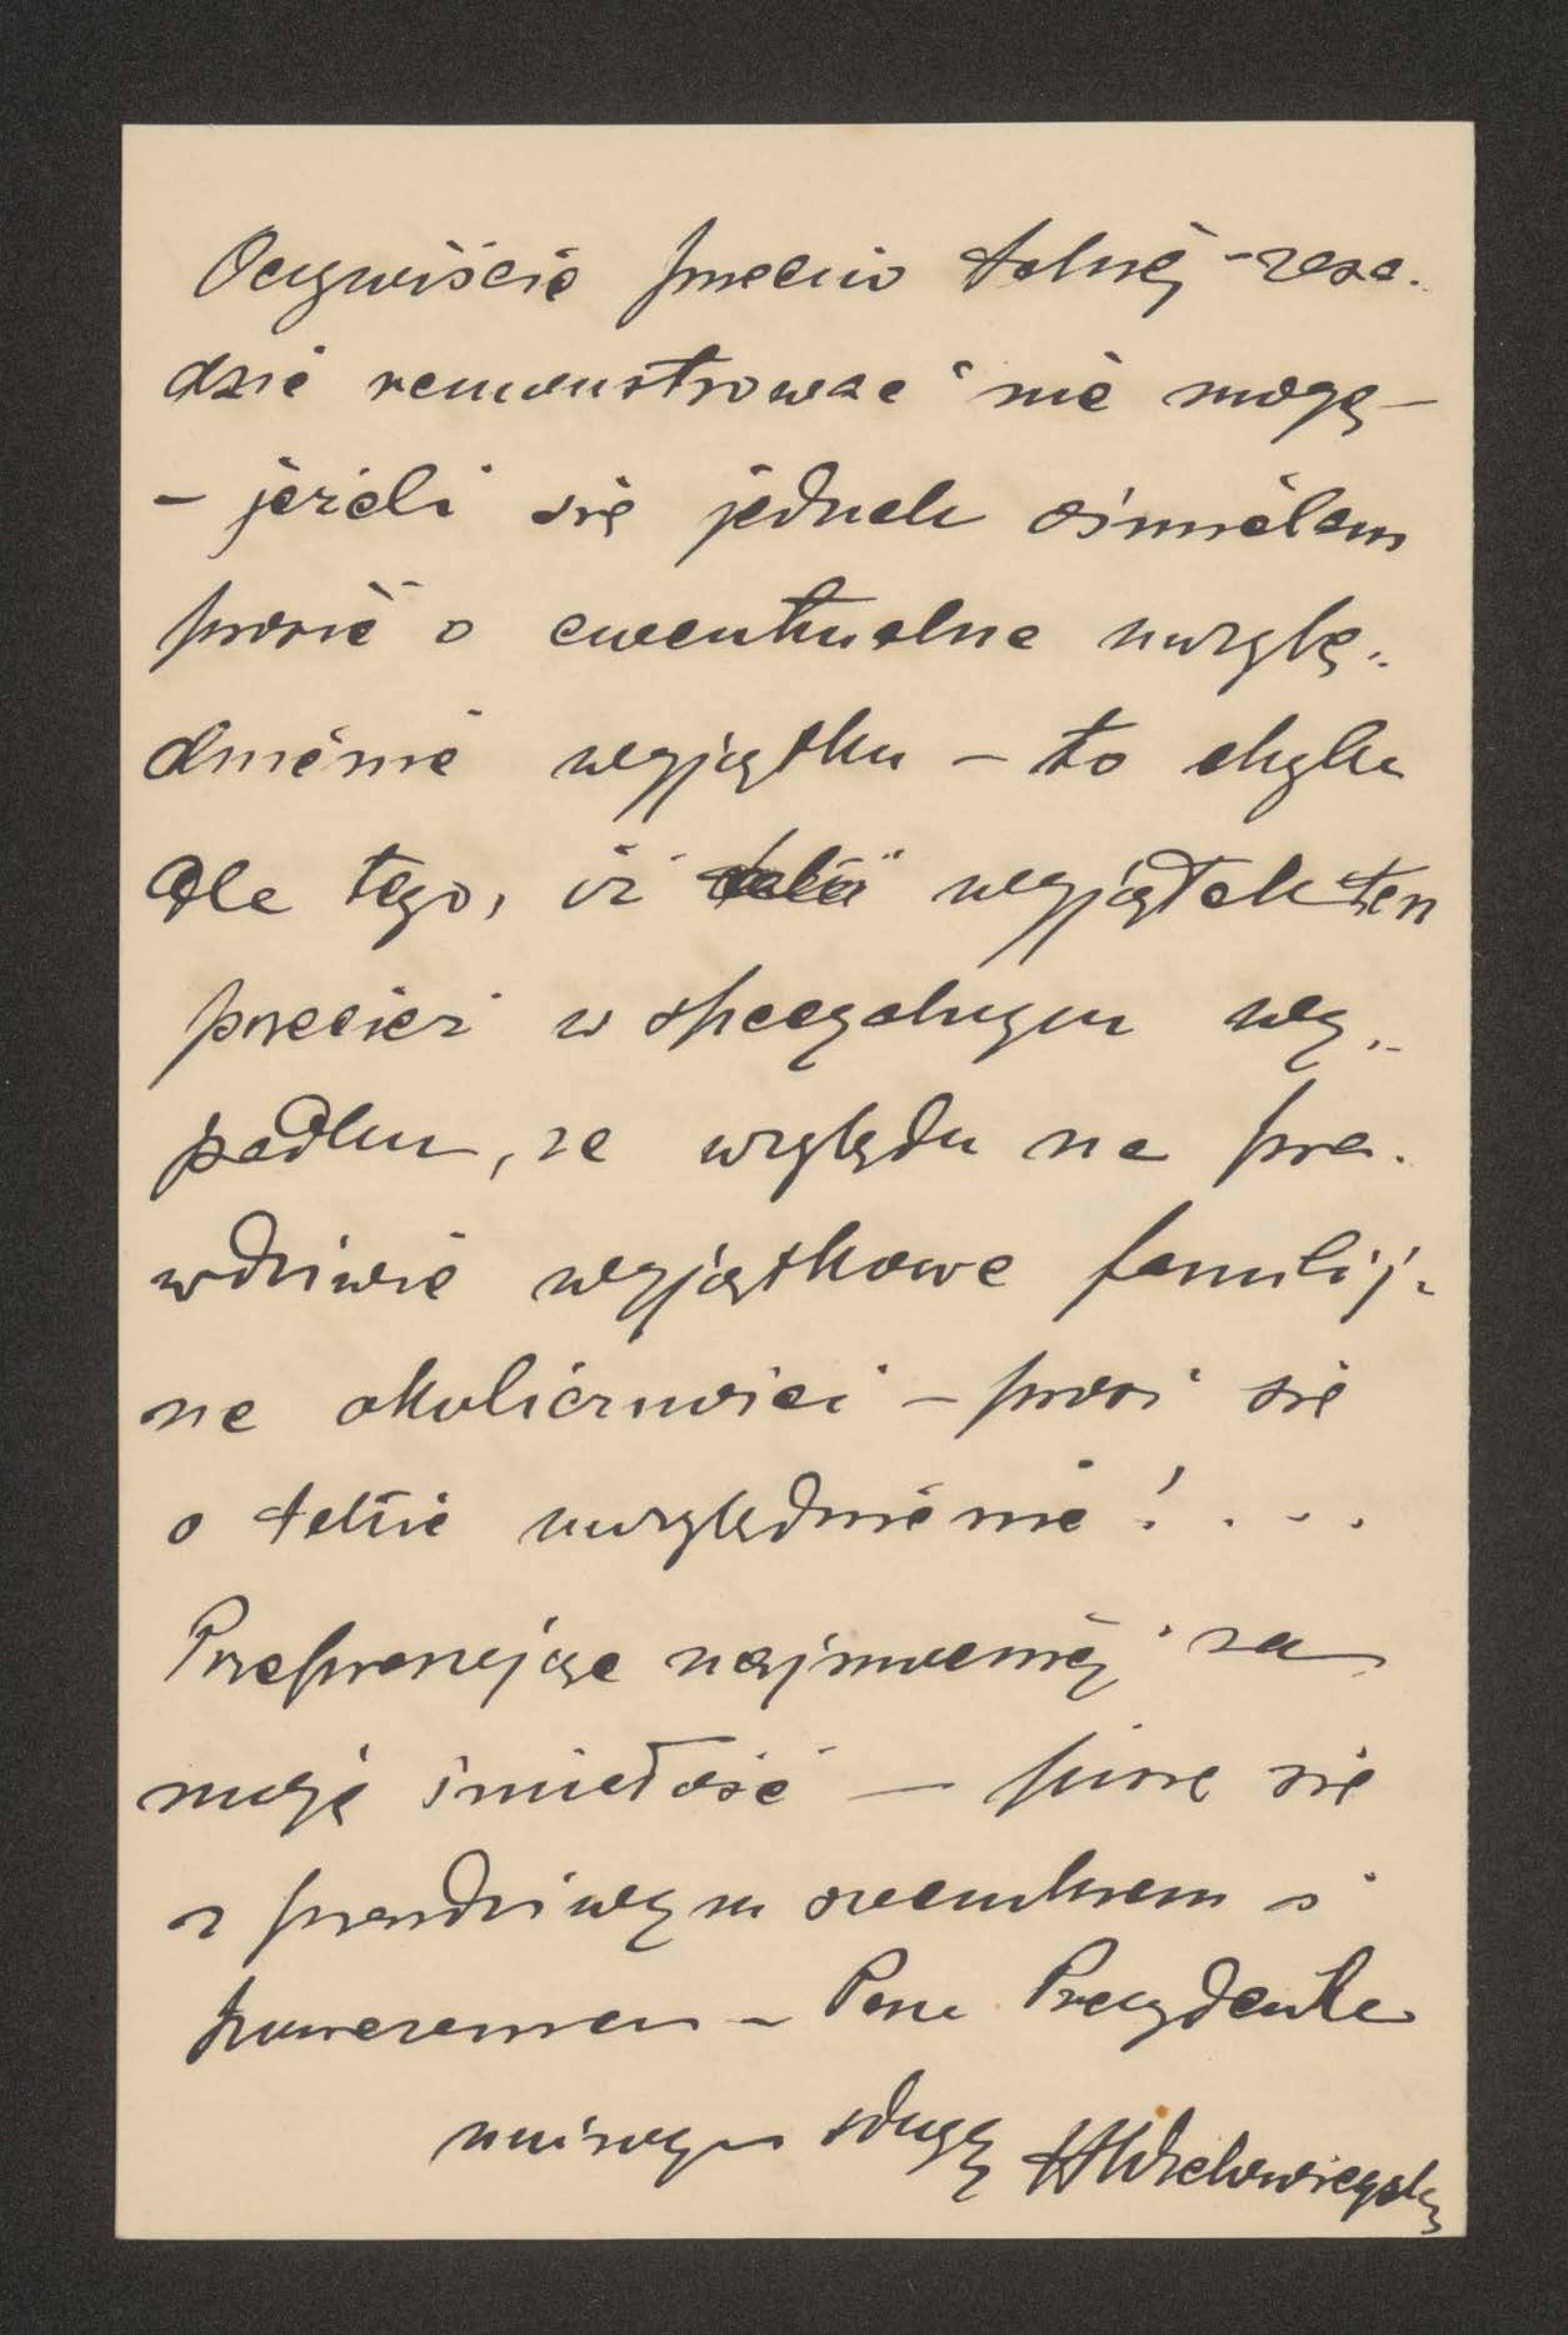 Oczywiście przeciw takiéj zasa-
dzie remonstrować nie mogę —
— jeżeli się jednak ośmielam
prosić o ewentualne uwzglę-
dnienie wyjątku — to chyba
dla tego, iż wyjątek ten
przecież w specyalnym wy-
padku, ze względu na pra-
wdziwie wyjątkowe familij-
ne okoliczności — prosi się
o takie uwzględnienie! . . .
Przepraszając najmocniéj za
moją śmiałość — piszę się
z prawdziwym szacunkiem i
poważaniem — Pana Prezydenta
uniżonym sługą